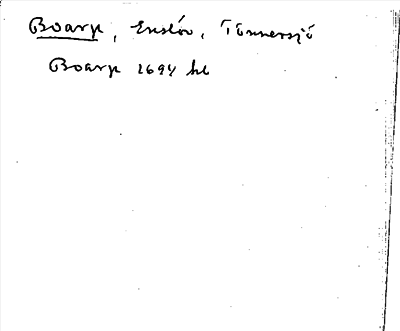 Boarp, Enslöv, Tönnersjö
Boarp 1694 hl